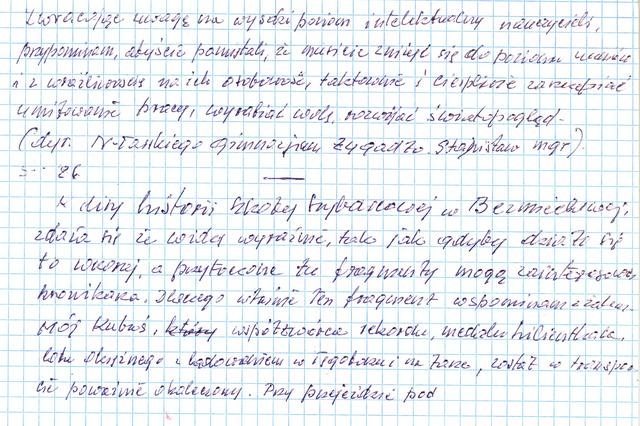 Zwracając uwagę na wysoki poziom intelektualny nauczycieli,
przypominam, abyście pamiętali, że musicie zniżyć się do poziomu uczniów
i z wrażliwością na ich osobowość, taktownie i cierpliwie zaszczepiać
umiłowanie pracy, wyrabiać wolę, rozwijać światopogląd.-
(dyr. N-Tarskiego Gimnazjum Zygadło Stanisław mgr).
26
historii szkoły szybowcowej w Bezmiechowej,
zdaje się że widzę wyraźnie, tak jak gdyby działo się
to wczoraj, a przytoczone tu fragmenty mogą zainteresować
kronikarza. Dlaczego właśnie ten fragment wspominam
Mój Kubuś, współtwórca rekordu, medalu Lilienthala,
lotu okrężnego z lądowaniem w na , został w
poważnie okaleczony. Przy przejeździe pod